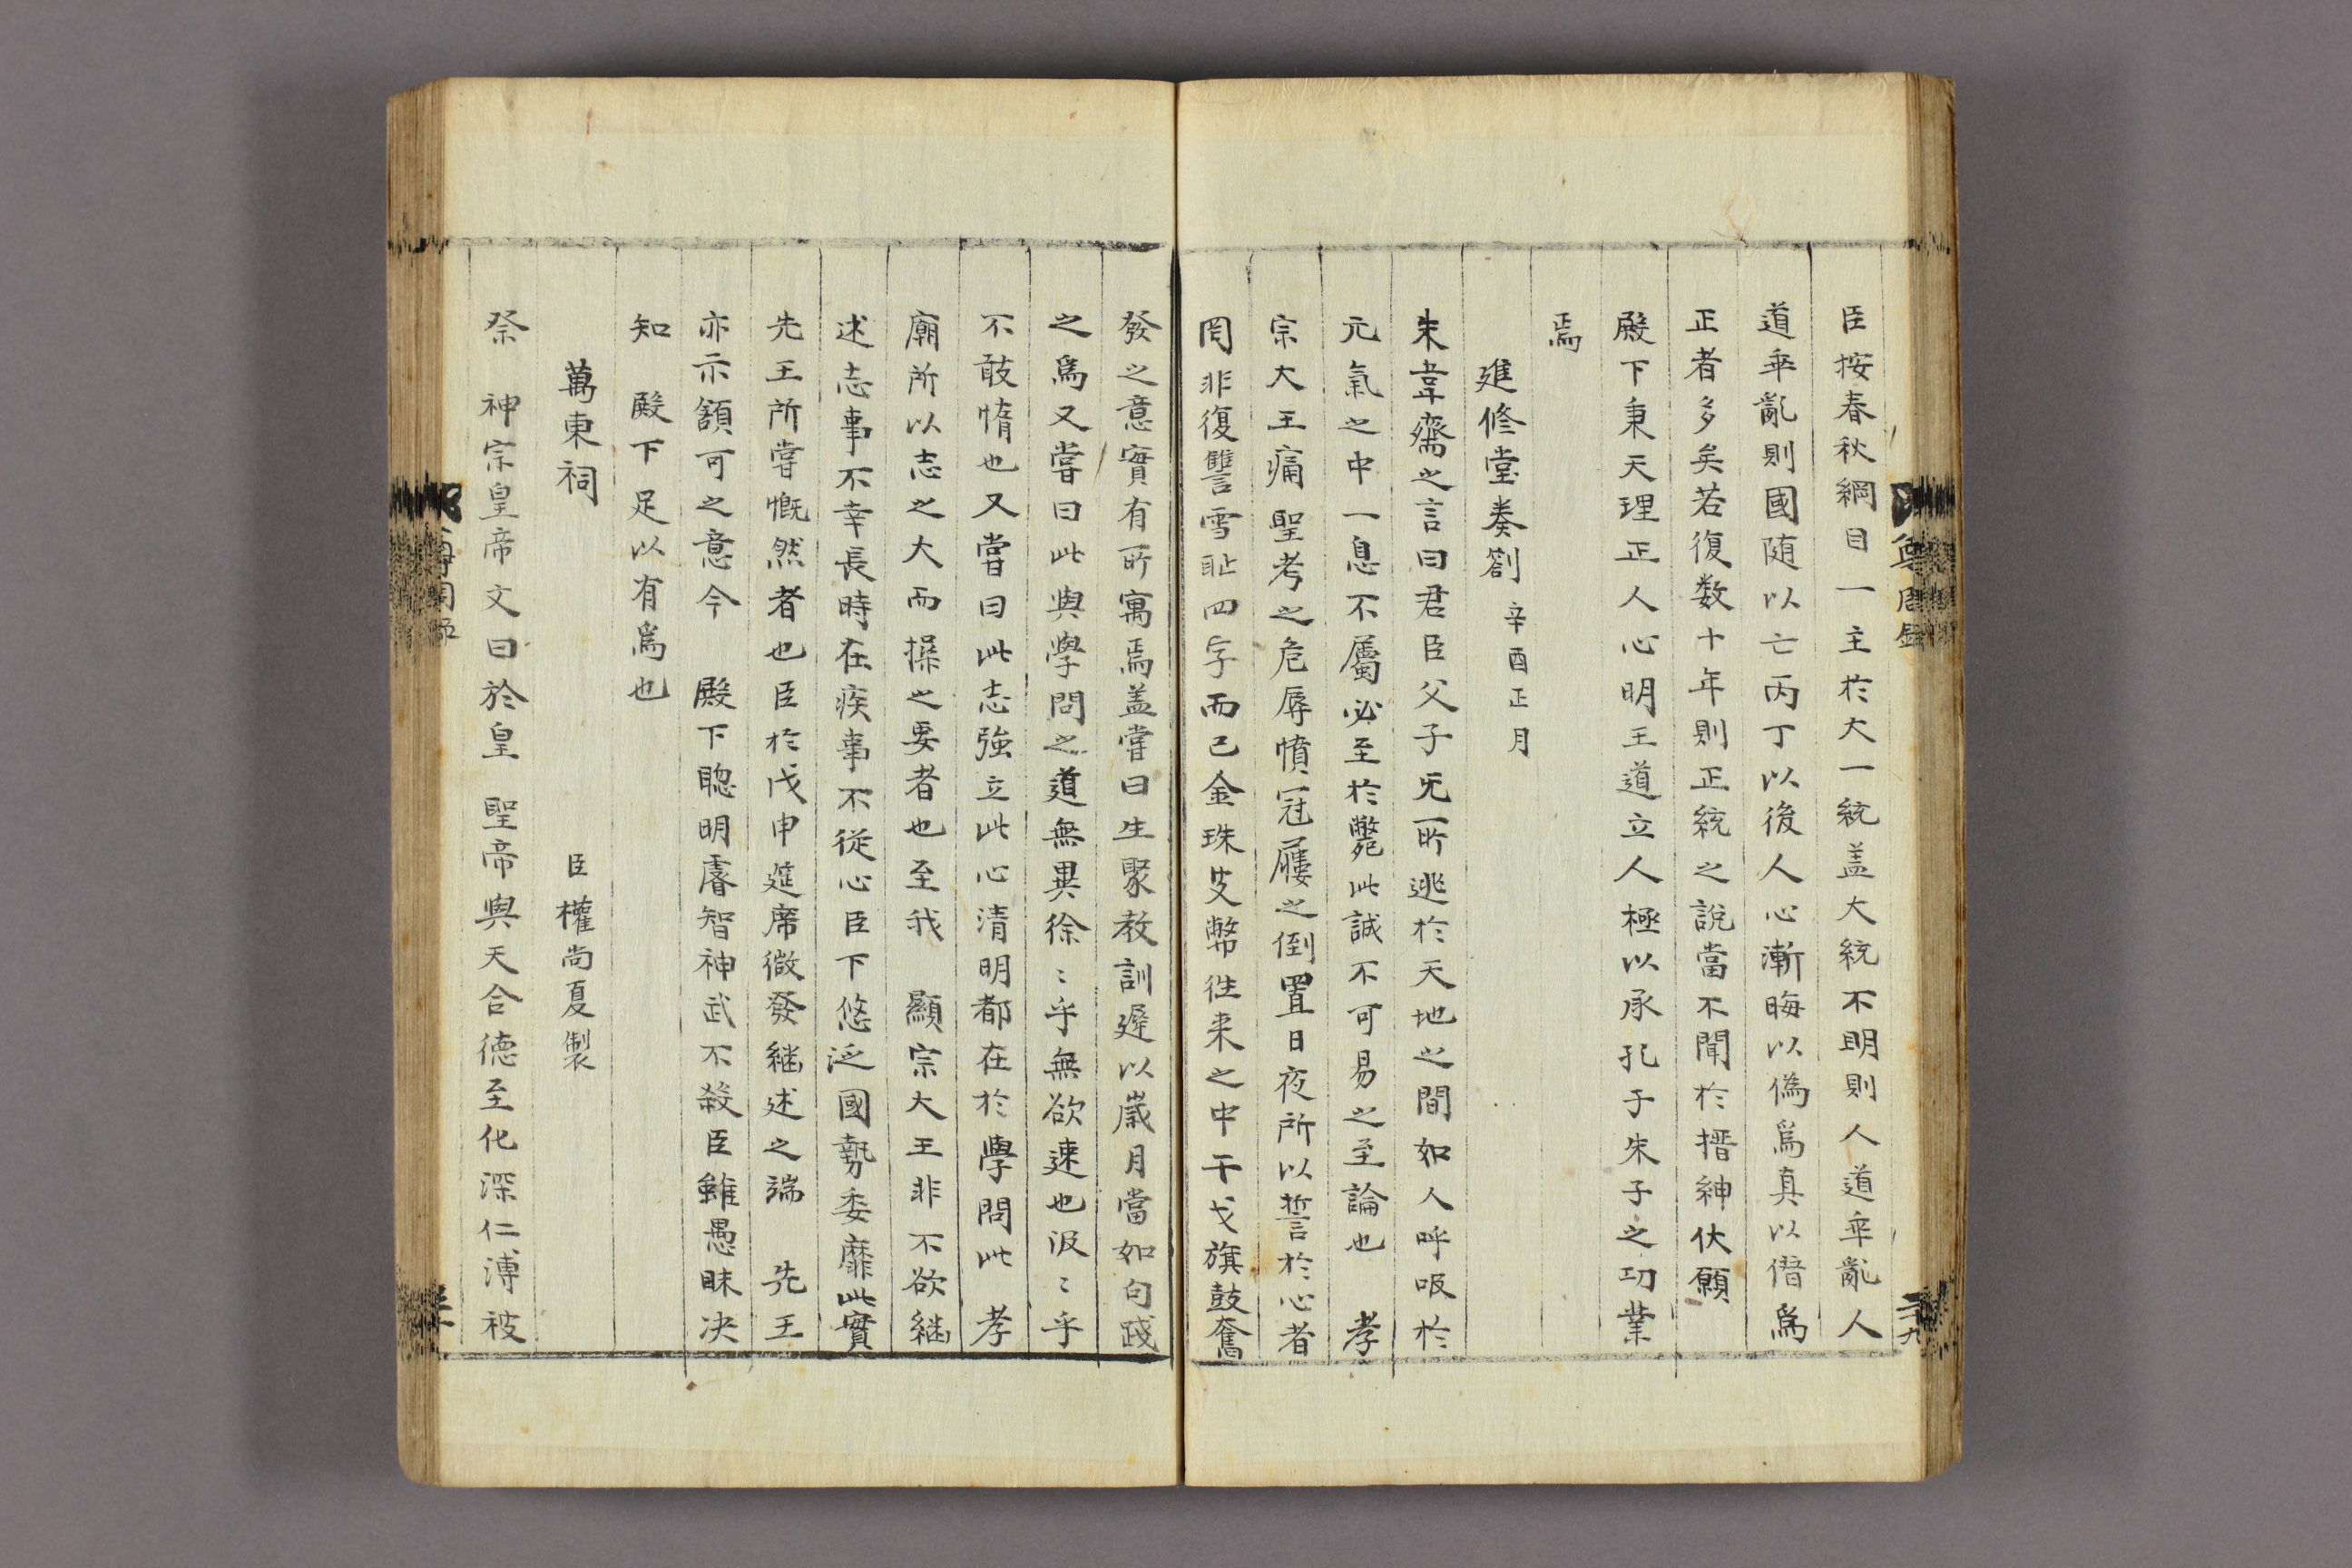 臣按春秋綱目一主於大一統盖大統不明則人道乖亂人
道乖亂則國随以亡丙丁以後人心漸晦以僞爲真以僭爲
正者多矣若復数十年則正統之說當不聞於搢紳伏願
殿下秉天理正人心明王道立人極以承孔子朱子之功業
焉
進修堂奏箚 辛酉正月
朱韋齋之言曰君臣父子无所逃於天地之間如人呼吸於
元氣之中一息不屬必至於斃此誠不可易之至論也 孝
宗大王痛 聖考之危辱憤冠屨之倒置日夜所以誓於心者
罔非復讐雪耻四字而已金珠皮幣徃来之中干戈旗鼓奮
發之意實有所寓焉盖嘗曰生聚教訓遲以歲月當如句踐
之爲又嘗曰此與學問之道無異徐〻乎無欲速也汲〻乎
不敢惰也又嘗曰此志強立此心清明都在於學問此 孝
廟所以志之大而操之要者也至我 顯宗大王非不欲継
述志事不幸長時在疾事不從心臣下悠泛國勢委靡此實
先王所嘗慨然者也臣於戊申筵席微發継述之端 先王
亦示頷可之意今 殿下聦明睿智神武不殺臣雖愚昧决
知 殿下足以有爲也
萬東祠 臣權尚夏製
祭 神宗皇帝文曰於皇 聖帝與天合德至化深仁溥被
尊周録
二十九